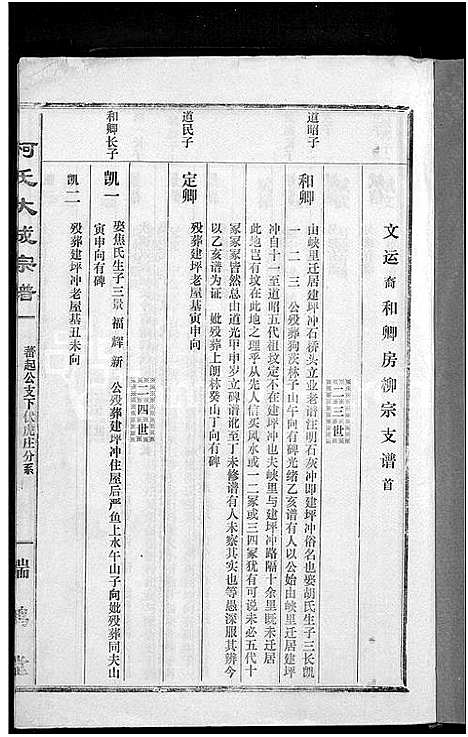 文运裔和卿房柳宗支谱首
二三世
道昭子
和卿
由峡里迁居建坪冲石桥头立业老谱注明石灰冲即建坪冲俗名也娶胡氏生子三长凯
一 二 三 公殁葬狗茨林子山午向有碑光绪乙亥谱有人以公始由峡里迁居建坪
冲自十一至道昭五代祖坟定不在建坪冲也夫峡里与建坪冲路隔十余里既未迁居
此地岂有坟在此地之理乎从先人信买风水或一二冢或三四冢犹有可说未必五代十
冢冢冢皆然总由道光甲申岁立碑谱讹至丁未修谱有人未察其实也等愚深服其辨今
以乙亥谱为证 妣殁葬上朗林癸山丁向有碑
道民子
定卿
殁葬建坪冲老屋基寅申向
二四世
和卿长子
凯一
娶焦氏生子三景 福 辉 新 公殁葬建坪冲住屋后严鱼上水午山子向妣殁葬同夫山
寅申向有碑
凯二
殁葬建坪冲老屋基丑未向
柯氏大成宗谱
蕃起公支下伏虎庄分系
一
瑞鹊堂